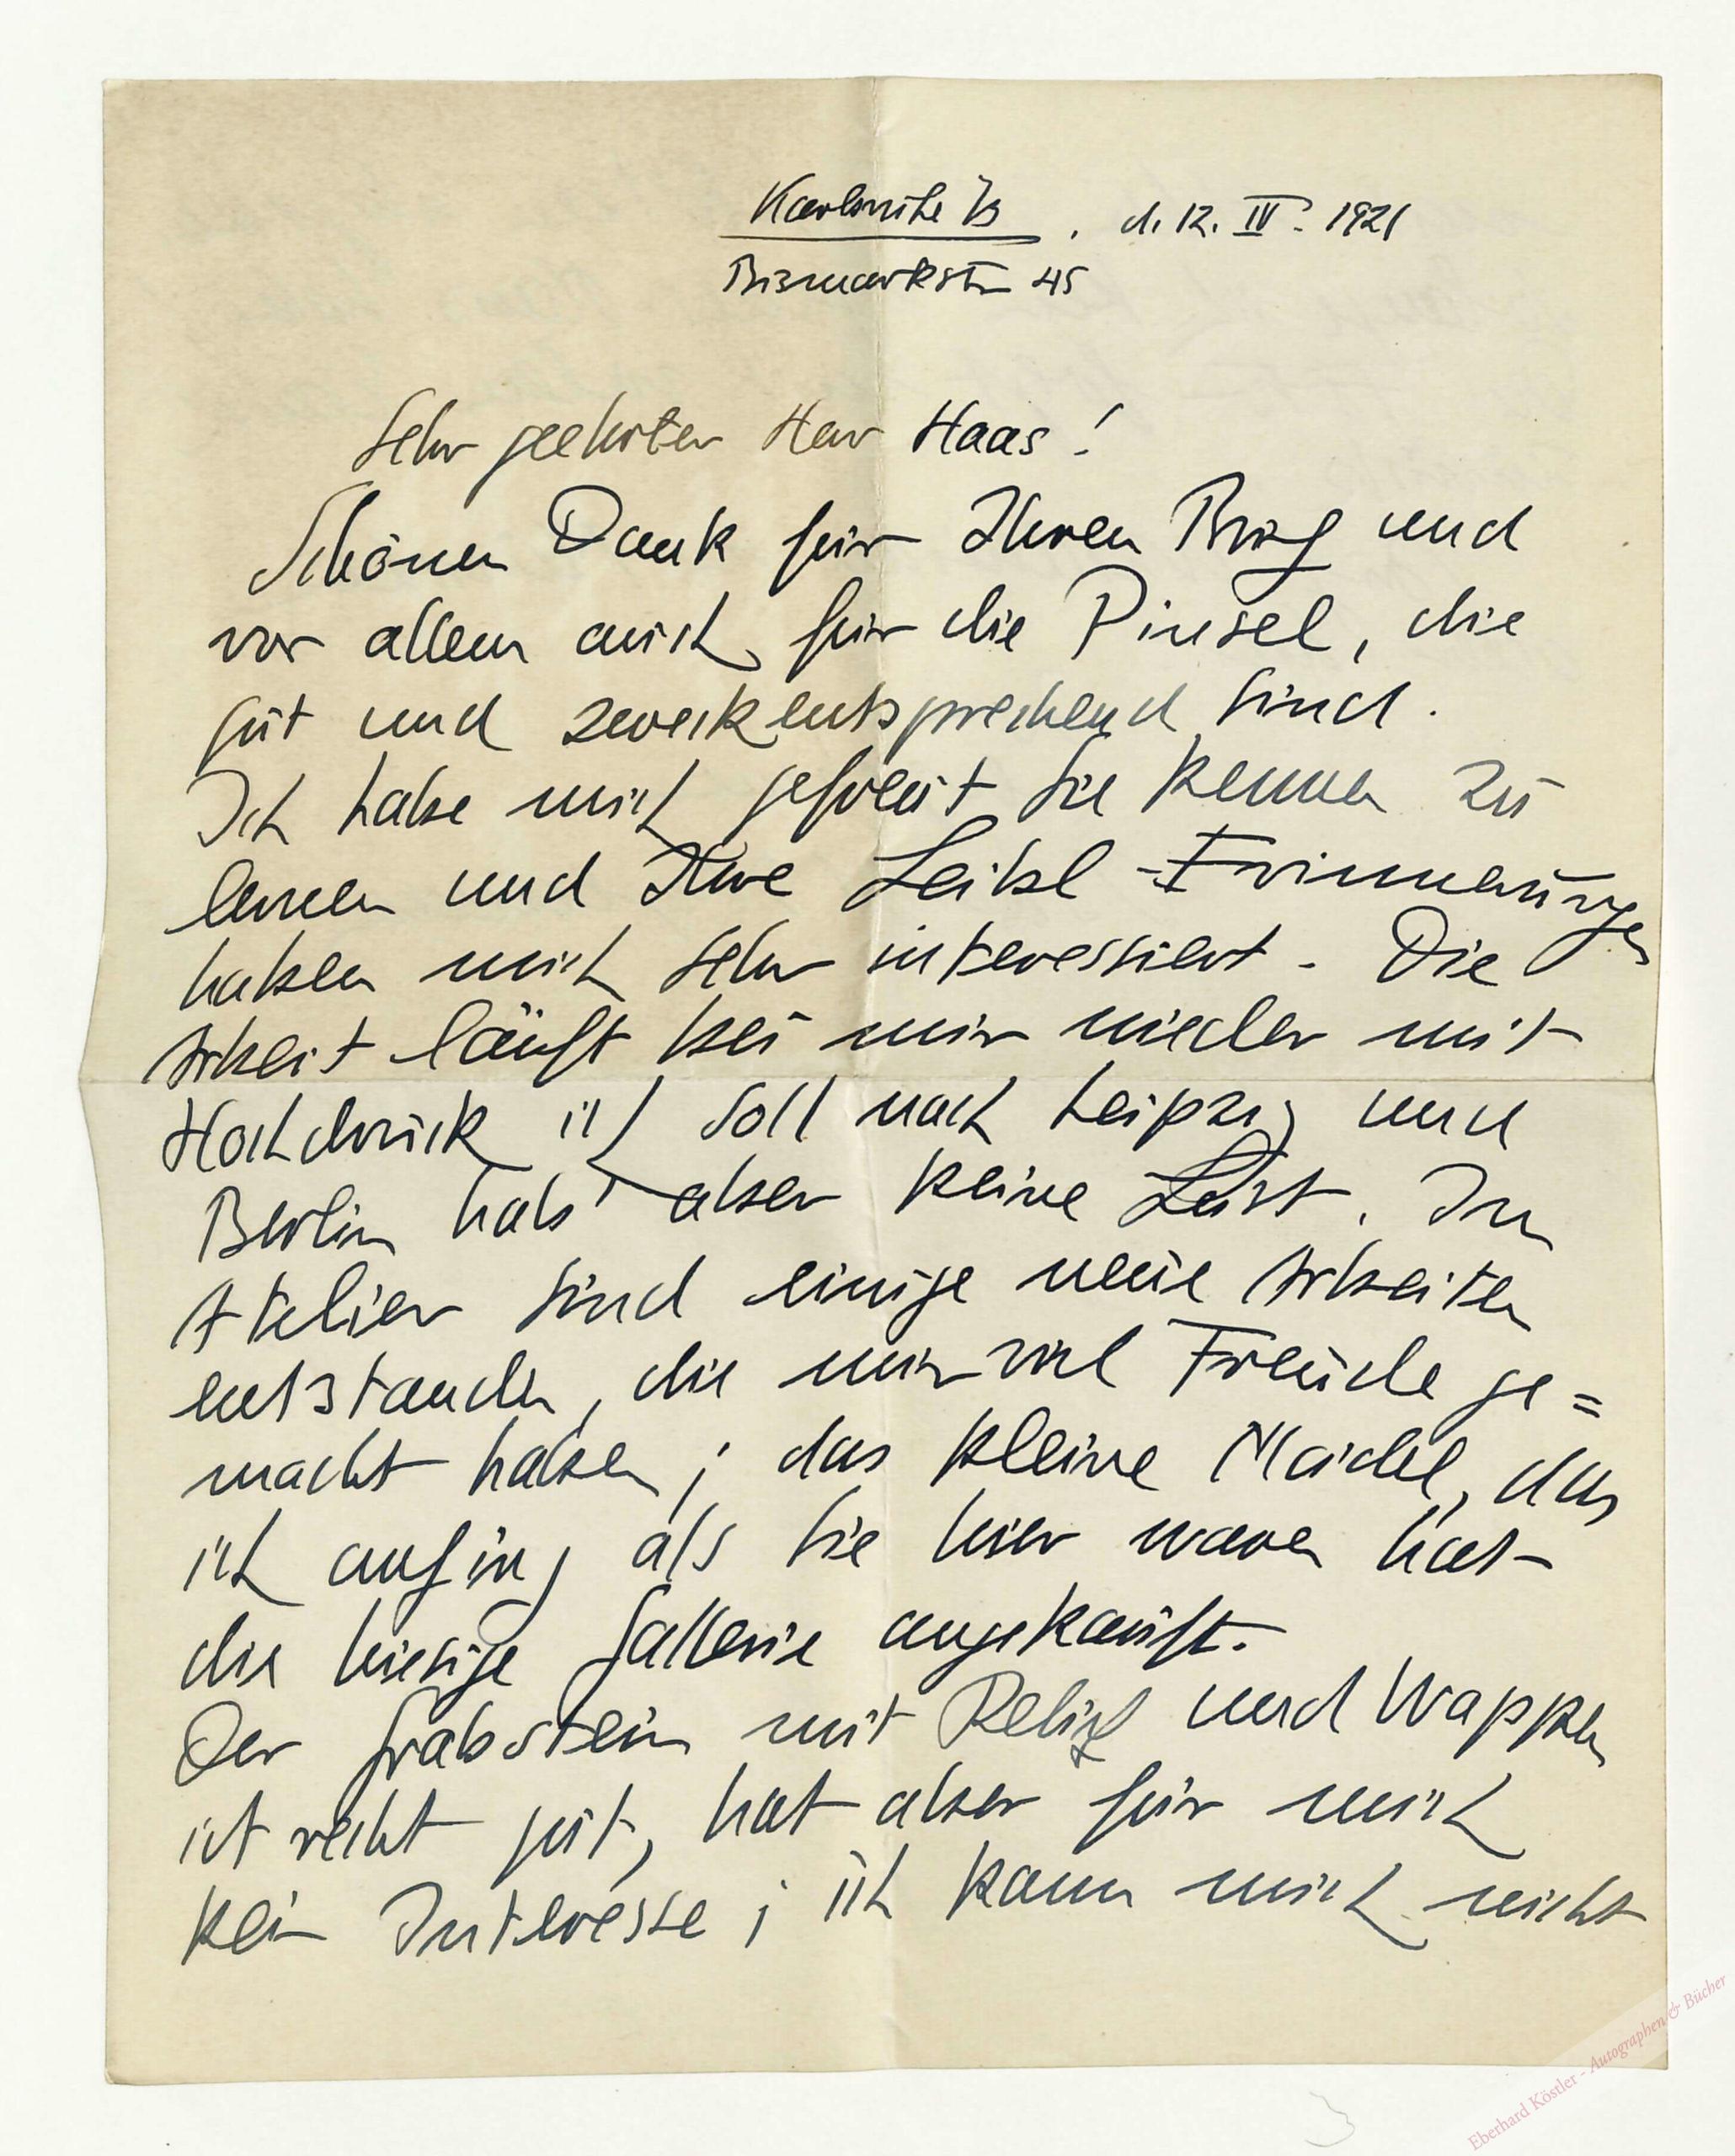 Karlsruhe i/B. d. 12. IV. 1921
Bismarkstr 45
Sehr geehrter Herr Haas!
Schönen Dank für Ihren Brief und
vor allem auch für die Pinsel, die
gut und zweckentsprechend sind.
Ich habe mich gefreut Sie kennen zu
lernen und Ihre Leibl-Erinnerungen
haben mich sehr interessiert. Die
Arbeit läuft bei mir wieder mit
Hochdruck ich soll nach Leipzig und
Berlin hab' aber keine Lust. Im
Atelier sind einige neue Arbeiten
entstanden, die mir viel Freude ge=
macht haben; das kleine Maidel, das
ich anfing als Sie hier waren hat
die hiesige Gallerie angekauft.
Der Grabstein mit Relief und Wappen
ist recht gut, hat aber für mich
kein Interesse; ich kann mich nicht
Eberhard Köstler - Autographen & Bücher